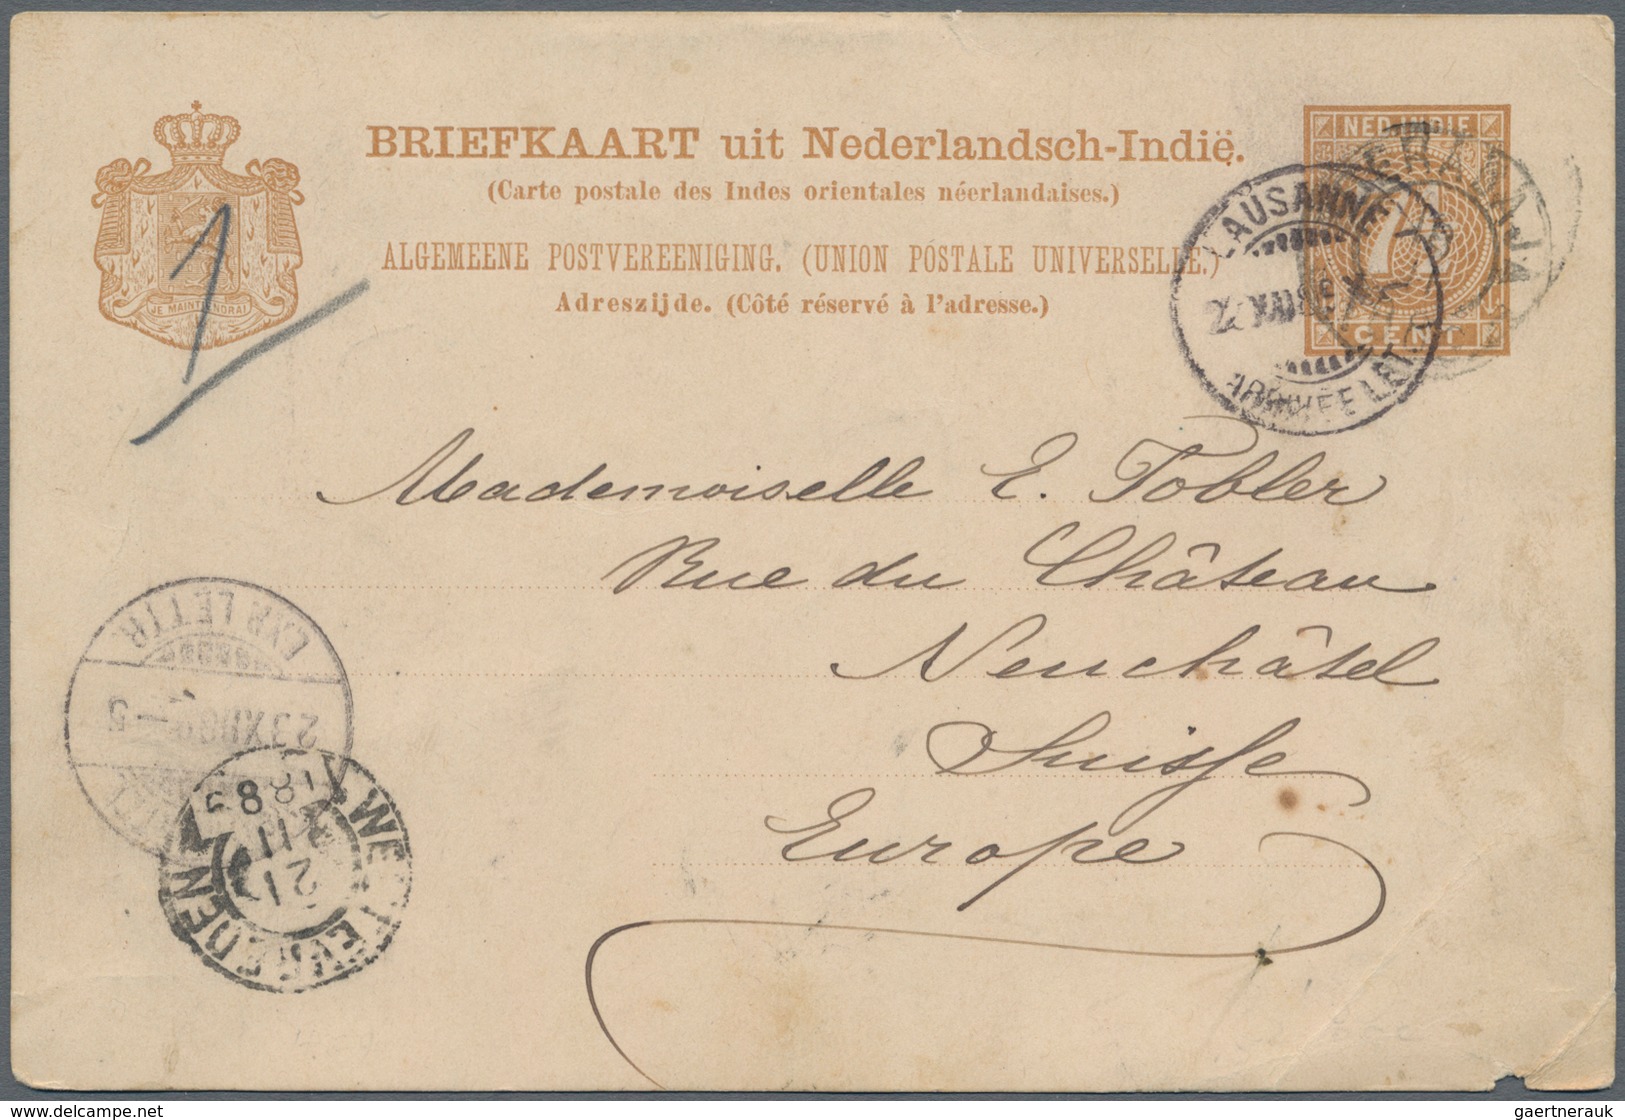 BRIEFKAART uit Nederlandsch-Indië.
(Carte postale des Indes orientales néerlandaises.)
ALGEMEENE POSTVEREENIGING. (UNION POSTALE UNIVERSELLE.)
Adreszijde. (Côté réservé à l'adresse.)
JE MAINTIENDRAI
1
NED. INDIE
7½
CENT
LAUSANNE
XII 88
Mademoiselle E. Tobler
Rue du Château
Neuchâtel
Suisse
Europe
EXP. LETTR.
23 XII 88 — 5
WELTEVREDEN
21
11
188
delcampe.net
gaertnerauk